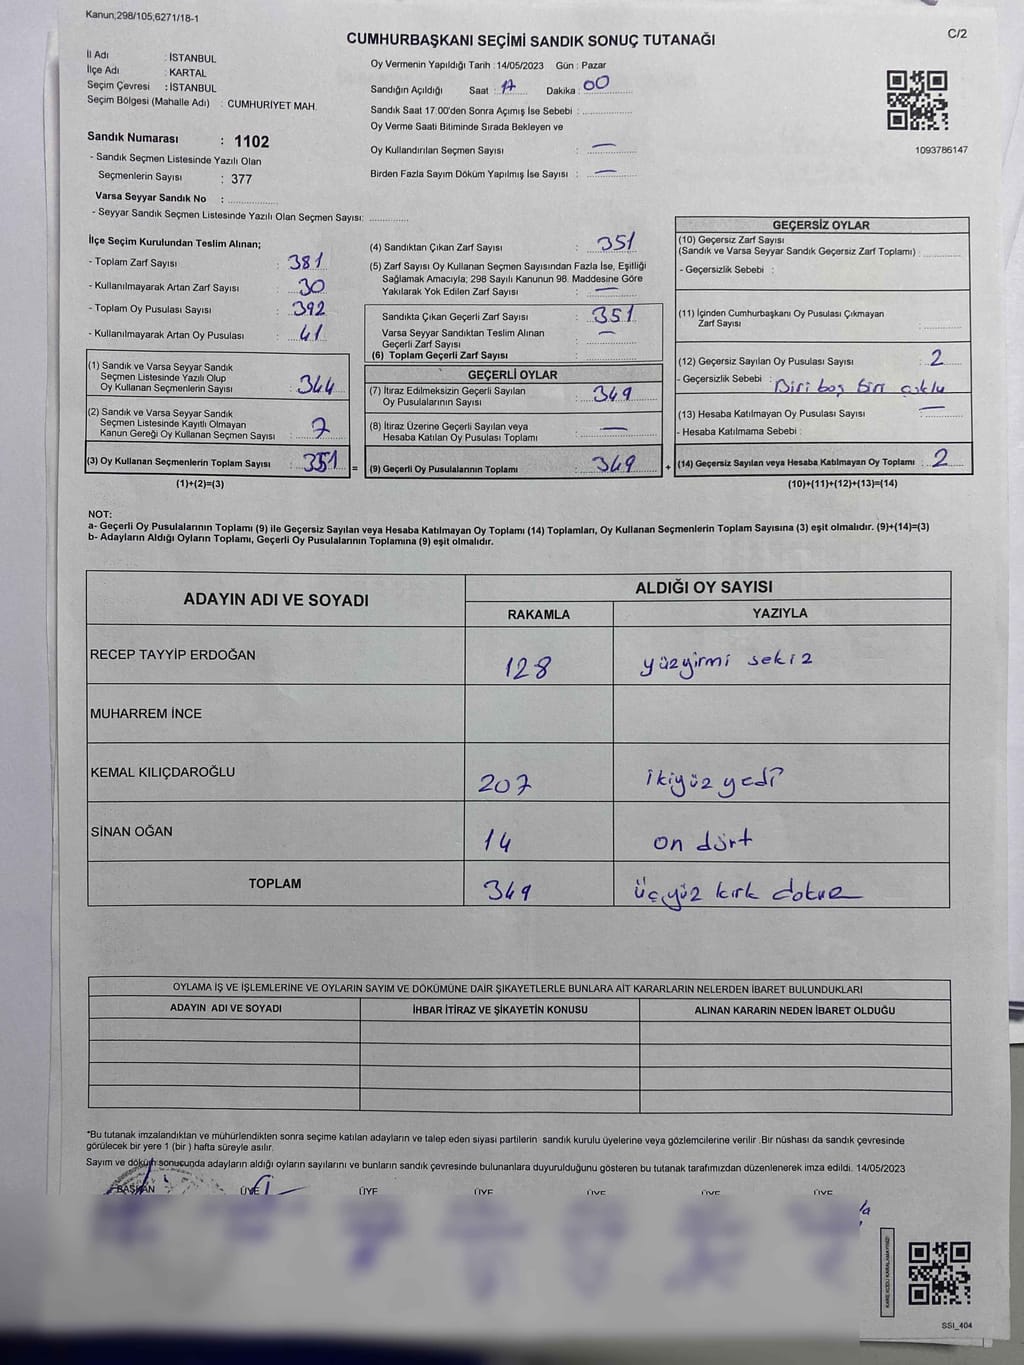 Kanun,298/105,6271/18-1
C/2
CUMHURBAŞKANI SEÇİMİ SANDIK SONUÇ TUTANAĞI
İl Adı : İSTANBUL
İlçe Adı : KARTAL
Seçim Çevresi : İSTANBUL
Seçim Bölgesi (Mahalle Adı) : CUMHURİYET MAH.
Sandık Numarası : 1102
- Sandık Seçmen Listesinde Yazılı Olan
Seçmenlerin Sayısı : 377
Varsa Seyyar Sandık No :
- Seyyar Sandık Seçmen Listesinde Yazılı Olan Seçmen Sayısı:
Oy Vermenin Yapıldığı Tarih :14/05/2023 Gün : Pazar
Sandığın Açıldığı Saat : 17 Dakika : 00
Sandık Saat 17:00'den Sonra Açımış İse Sebebi :
Oy Verme Saati Bitiminde Sırada Bekleyen ve
Oy Kullandırılan Seçmen Sayısı : —
Birden Fazla Sayım Döküm Yapılmış İse Sayısı : —
1093786147
İlçe Seçim Kurulundan Teslim Alınan;
- Toplam Zarf Sayısı : 381
- Kullanılmayarak Artan Zarf Sayısı : 30
- Toplam Oy Pusulası Sayısı : 392
- Kullanılmayarak Artan Oy Pusulası : 41
(1) Sandık ve Varsa Seyyar Sandık
Seçmen Listesinde Yazılı Olup
Oy Kullanan Seçmenlerin Sayısı : 344
(2) Sandık ve Varsa Seyyar Sandık
Seçmen Listesinde Kayıtlı Olmayan
Kanun Gereği Oy Kullanan Seçmen Sayısı : 7
(3) Oy Kullanan Seçmenlerin Toplam Sayısı : 351
(1)+(2)=(3)
(4) Sandıktan Çıkan Zarf Sayısı : 351
(5) Zarf Sayısı Oy Kullanan Seçmen Sayısından Fazla İse, Eşitliği
Sağlamak Amacıyla; 298 Sayılı Kanunun 98. Maddesine Göre
Yakılarak Yok Edilen Zarf Sayısı : —
Sandıkta Çıkan Geçerli Zarf Sayısı : 351
Varsa Seyyar Sandıktan Teslim Alınan : —
Geçerli Zarf Sayısı :
(6) Toplam Geçerli Zarf Sayısı :
GEÇERLİ OYLAR
(7) İtiraz Edilmeksizin Geçerli Sayılan
Oy Pusulalarının Sayısı : 349
(8) İtiraz Üzerine Geçerli Sayılan veya
Hesaba Katılan Oy Pusulası Toplamı : —
= (9) Geçerli Oy Pusulalarının Toplamı : 349
GEÇERSİZ OYLAR
(10) Geçersiz Zarf Sayısı
(Sandık ve Varsa Seyyar Sandık Geçersiz Zarf Toplamı) :
- Geçersizlik Sebebi :
(11) İçinden Cumhurbaşkanı Oy Pusulası Çıkmayan
Zarf Sayısı :
(12) Geçersiz Sayılan Oy Pusulası Sayısı : 2
- Geçersizlik Sebebi : Biri boş biri
(13) Hesaba Katılmayan Oy Pusulası Sayısı : —
- Hesaba Katılmama Sebebi :
+ (14) Geçersiz Sayılan veya Hesaba Katılmayan Oy Toplamı : 2
(10)+(11)+(12)+(13)=(14)
NOT:
a- Geçerli Oy Pusulalarının Toplamı (9) ile Geçersiz Sayılan veya Hesaba Katılmayan Oy Toplamı (14) Toplamları, Oy Kullanan Seçmenlerin Toplam Sayısına (3) eşit olmalıdır. (9)+(14)=(3)
b- Adayların Aldığı Oyların Toplamı, Geçerli Oy Pusulalarının Toplamına (9) eşit olmalıdır.
ADAYIN ADI VE SOYADI
ALDIĞI OY SAYISI
RAKAMLA YAZIYLA
RECEP TAYYİP ERDOĞAN 128 yüzyirmi sekiz
MUHARREM İNCE
KEMAL KILIÇDAROĞLU 207 ikiyüz yedi
SİNAN OĞAN 14 on dört
TOPLAM 349 üçyüz kırk dokuz
OYLAMA İŞ VE İŞLEMLERİNE VE OYLARIN SAYIM VE DÖKÜMÜNE DAİR ŞİKAYETLERLE BUNLARA AİT KARARLARIN NELERDEN İBARET BULUNDUKLARI
ADAYIN ADI VE SOYADI İHBAR İTİRAZ VE ŞİKAYETİN KONUSU ALINAN KARARIN NEDEN İBARET OLDUĞU
*Bu tutanak imzalandıktan ve mühürlendikten sonra seçime katılan adayların ve talep eden siyasi partilerin sandık kurulu üyelerine veya gözlemcilerine verilir .Bir nüshası da sandık çevresinde
görülecek bir yere 1 (bir ) hafta süreyle asılır.
Sayım ve döküm sonucunda adayların aldığı oyların sayılarını ve bunların sandık çevresinde bulunanlara duyurulduğunu gösteren bu tutanak tarafımızdan düzenlenerek imza edildi. 14/05/2023
BAŞKAN ÜYE ÜYE ÜYE ÜYE ÜYE ÜYE
KARE KODU KARALAMAYINIZ!
SSI_404